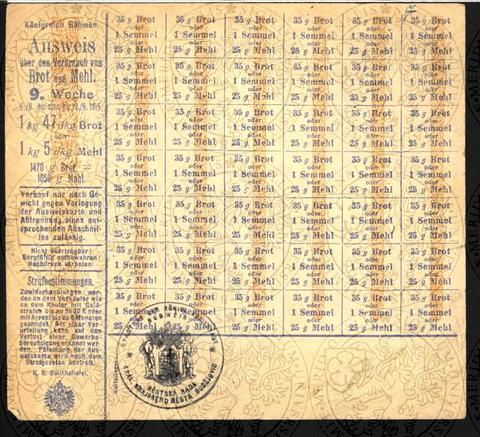 Königreich Böhmen.
Ausweis
über den Verbrauch von
Brot und Mehl.
9. Woche
1 kg 47 dkg Brot
1 kg 5 dkg Mehl
1470 g Brot =
1050 g Mehl.
Verkauf nur nach Ge-
wicht gegen Vorlegung
der Ausweiskarte und
Abtrennung eines ent-
sprechenden Abschnit-
tes zulässig.
Nicht übertragbar!
Sorgfältig aufbewahren!
Nachdruck verboten!
Strafbestimmungen.
Zuwiderhandlungen wer-
den an dem Verkäufer wie
an dem Käufer mit Geld-
strafen bis zu 5000 K oder
mit Arrest bis zu 6 Monaten
geahndet. Bei einer Ver-
urteilung kann auf den
Verlust einer Gewerbe-
berechtigung erkannt wer-
den. Fälschung der Aus-
weiskarte wird nach dem
Strafgesetze bestraft.
K. k. Statthalterei.
35 g Brot 35 g Brot 35 g Brot 35 g Brot 35 g Brot 35 g Brot
oder oder oder oder oder oder
1 Semmel 1 Semmel 1 Semmel 1 Semmel 1 Semmel 1 Semmel
oder oder oder oder oder oder
25 g Mehl 25 g Mehl 25 g Mehl 25 g Mehl 25 g Mehl 25 g Mehl
35 g Brot 35 g Brot 35 g Brot 35 g Brot 35 g Brot 35 g Brot
oder oder oder oder oder oder
1 Semmel 1 Semmel 1 Semmel 1 Semmel 1 Semmel 1 Semmel
oder oder oder oder oder oder
25 g Mehl 25 g Mehl 25 g Mehl 25 g Mehl 25 g Mehl 25 g Mehl
35 g Brot 35 g Brot 35 g Brot 35 g Brot 35 g Brot 35 g Brot
oder oder oder oder oder oder
1 Semmel 1 Semmel 1 Semmel 1 Semmel 1 Semmel 1 Semmel
oder oder oder oder oder oder
25 g Mehl 25 g Mehl 25 g Mehl 25 g Mehl 25 g Mehl 25 g Mehl
35 g Brot 35 g Brot 35 g Brot 35 g Brot 35 g Brot 35 g Brot
oder oder oder oder oder oder
1 Semmel 1 Semmel 1 Semmel 1 Semmel 1 Semmel 1 Semmel
oder oder oder oder oder oder
25 g Mehl 25 g Mehl 25 g Mehl 25 g Mehl 25 g Mehl 25 g Mehl
35 g Brot 35 g Brot 35 g Brot 35 g Brot 35 g Brot 35 g Brot
oder oder oder oder oder oder
1 Semmel 1 Semmel 1 Semmel 1 Semmel 1 Semmel 1 Semmel
oder oder oder oder oder oder
25 g Mehl 25 g Mehl 25 g Mehl 25 g Mehl 25 g Mehl 25 g Mehl
35 g Brot 35 g Brot 35 g Brot 35 g Brot 35 g Brot 35 g Brot
oder oder oder oder oder oder
1 Semmel 1 Semmel 1 Semmel 1 Semmel 1 Semmel 1 Semmel
oder oder oder oder oder oder
25 g Mehl 25 g Mehl 25 g Mehl 25 g Mehl 25 g Mehl 25 g Mehl
35 g Brot 35 g Brot 35 g Brot 35 g Brot 35 g Brot 35 g Brot
oder oder oder oder oder oder
1 Semmel 1 Semmel 1 Semmel 1 Semmel 1 Semmel 1 Semmel
oder oder oder oder oder oder
25 g Mehl 25 g Mehl 25 g Mehl 25 g Mehl 25 g Mehl 25 g Mehl
MĚSTSKÁ RADA
KRAJSKÉHO MĚSTA BUDĚJOVIC